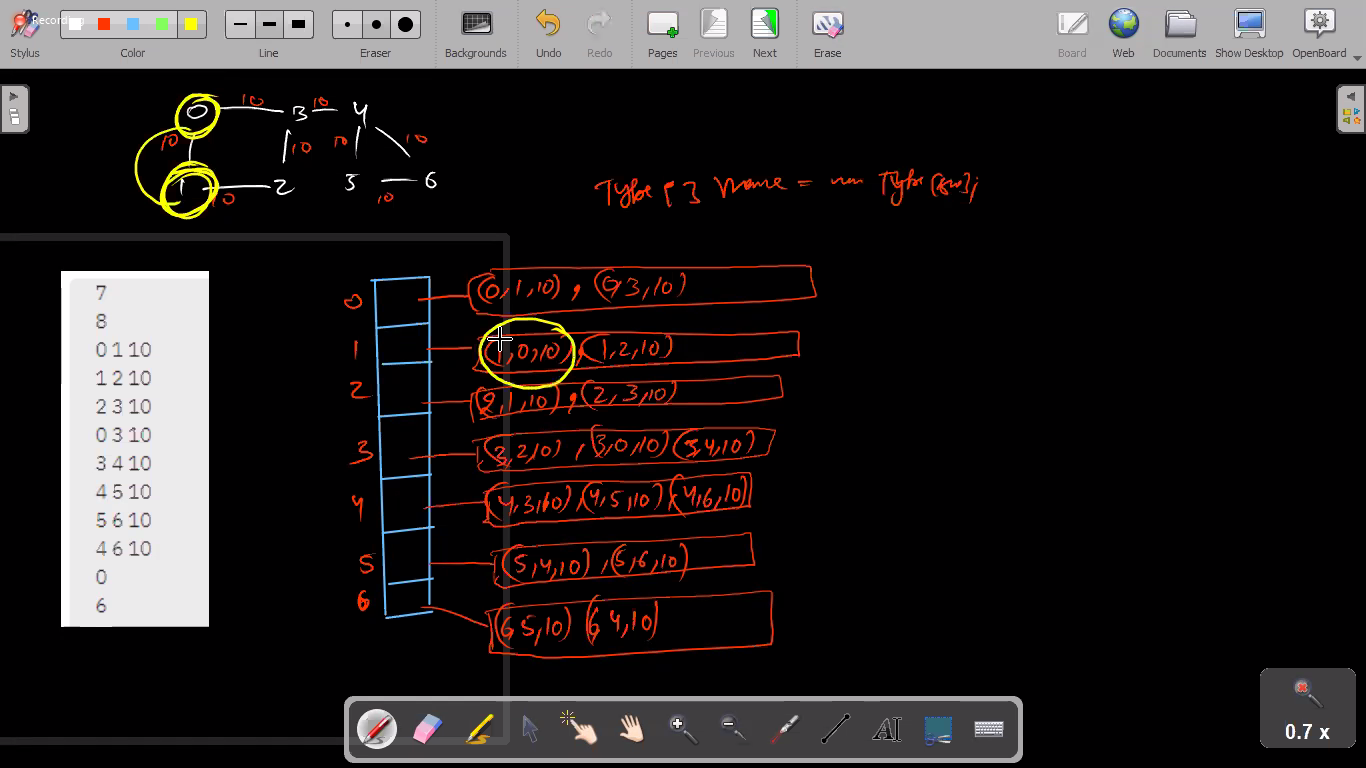 Recording
Stylus Color Line Eraser Backgrounds Undo Redo Pages Previous Next Erase Board Web Documents Show Desktop OpenBoard
0 10 3 10 4
10 10 10 10
1 10 2 5 10 6
Type [ ] Name = new Type[size];
7
8
0 1 10
1 2 10
2 3 10
0 3 10
3 4 10
4 5 10
5 6 10
4 6 10
0
6
0 (0,1,10), (0,3,10)
1 (1,0,10),(1,2,10)
2 (2,1,10),(2,3,10)
3 (3,2,10),(3,0,10)(3,4,10)
4 (4,3,10),(4,5,10),(4,6,10)
5 (5,4,10),(5,6,10)
6 (6,5,10) (6,4,10)
AI
0.7 x